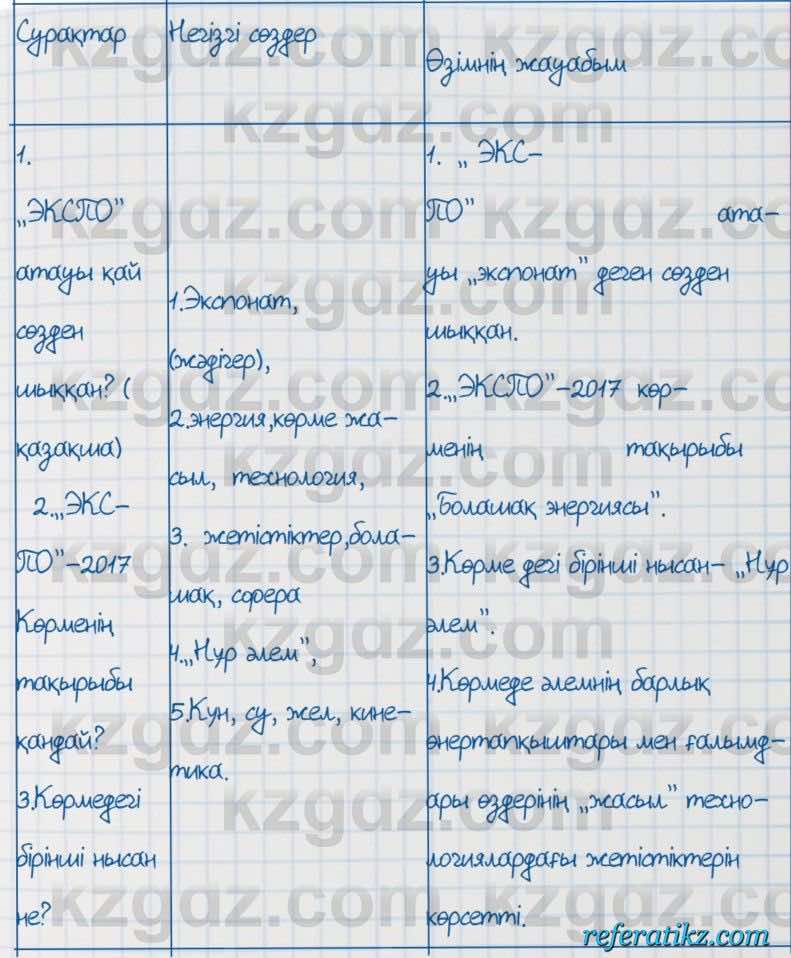 Сурақтар
Негізгі сөздер
Өзімнің жауабым
1.
„ЭКСПО”
атауы қай
сөзден
шыққан? (
қазақша)
2.„ЭКС-
ПО”-2017
Көрменің
тақырыбы
қандай?
3.Көрмедегі
бірінші нысан
не?
1.Экспонат,
(жәдігер),
2.энергия,көрме жа-
сыл, технология,
3. жетістіктер,бола-
шақ, сфера
4.„Нұр әлем”,
5.Күн, су, жел, кине-
тика.
1. „ ЭКС-
ПО” ата-
уы „экспонат” деген сөзден
шыққан.
2.„ЭКСПО”-2017 көр-
менің тақырыбы
„Болашақ энергиясы”.
3.Көрме дегі бірінші нысан- „Нұр
әлем”.
4.Көрмеде әлемнің барлық
өнертапқыштары мен ғалымд-
ары өздерінің „жасыл” техно-
логиялардағы жетістіктерін
көрсетті.
kzgdz.com
referatikz.com